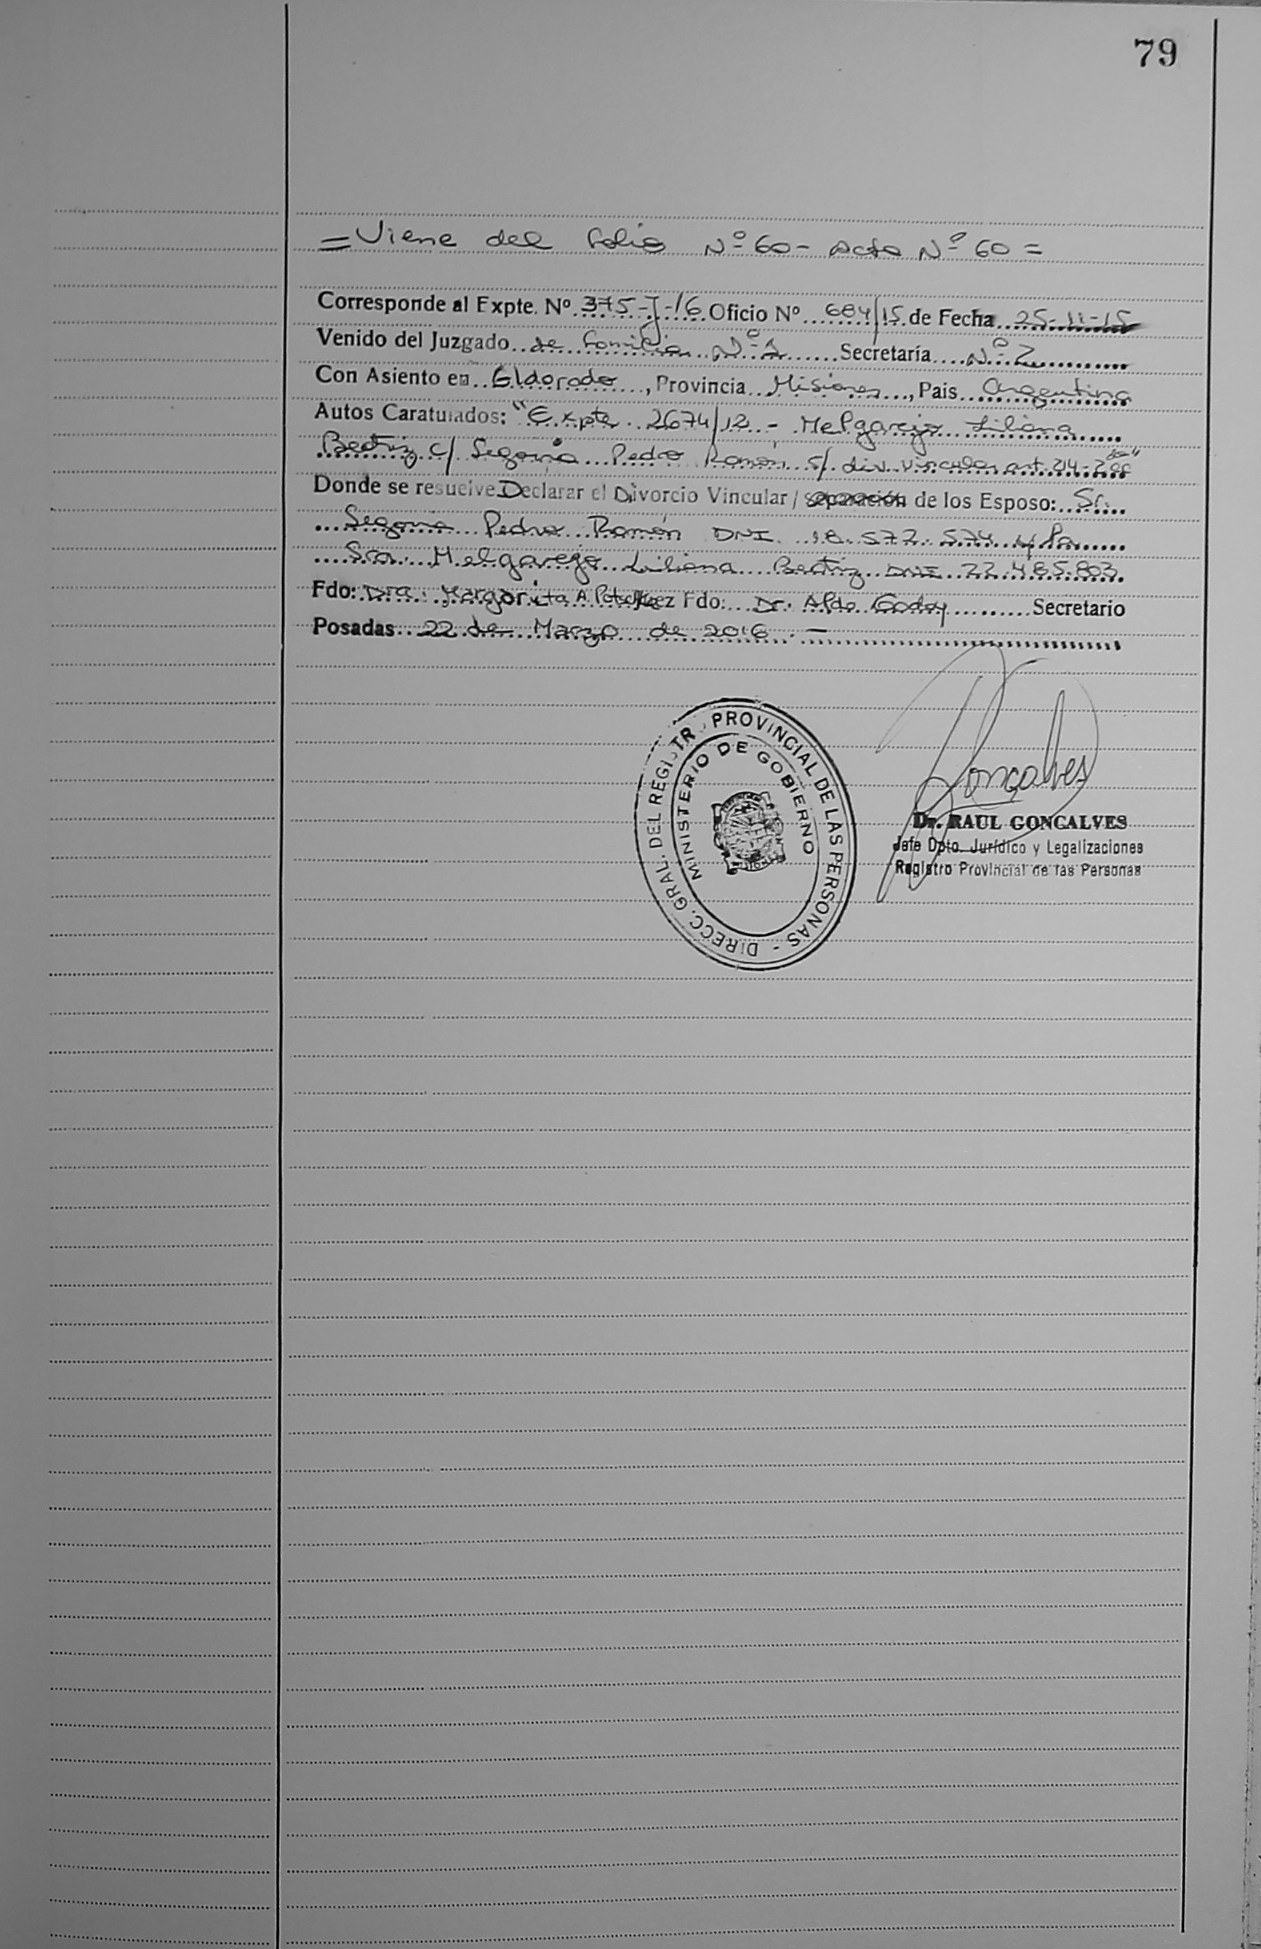 79
= Viene del folio Nº 60 - Acta Nº 60 =
Corresponde al Expte. Nº 375-J-16 Oficio Nº 684/15 de Fecha 25-11-15
Venido del Juzgado de Familia Nº 1 Secretaría Nº 2
Con Asiento en Eldorado, Provincia Misiones, Pais Argentina
Autos Caratulados: "Expte 2674/12 - Melgarejo Liliana
Beatriz c/ Segovia Pedro Ramón s/ div. vincular art. 214-2
Donde se resuelve Declarar el Divorcio Vincular / separación de los Esposo: Sr.
Segovia Pedro Ramón DNI 18.572.574 y la
Sra. Melgarejo Liliana Beatriz DNI 22.485.803.
Fdo: Dra. Margarita A. Juez Fdo: Dr. Aldo Godoy Secretario
Posadas 22 de Marzo de 2016 -
DIRECC. GRAL. DEL REGISTR PROVINCIAL DE LAS PERSONAS -
MINISTERIO DE GOBIERNO
Gonçalves
Dr. RAUL GONCALVES
Jefe Dpto. Jurídico y Legalizaciones
Registro Provincial de las Personas